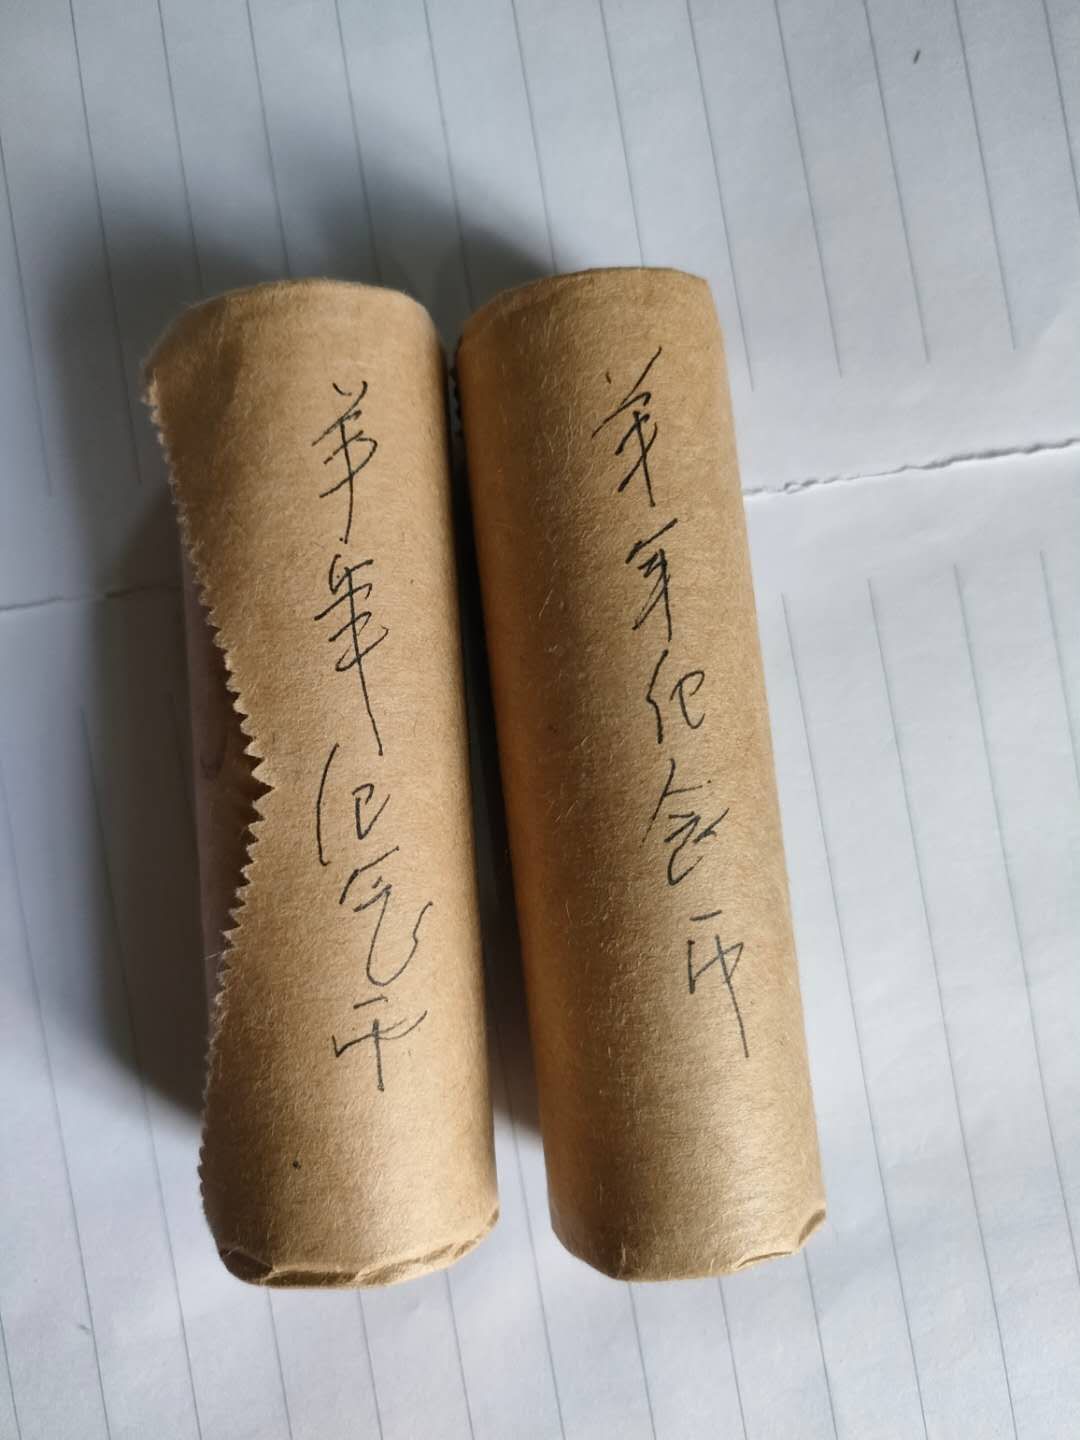 羊年纪念币
羊年纪念币